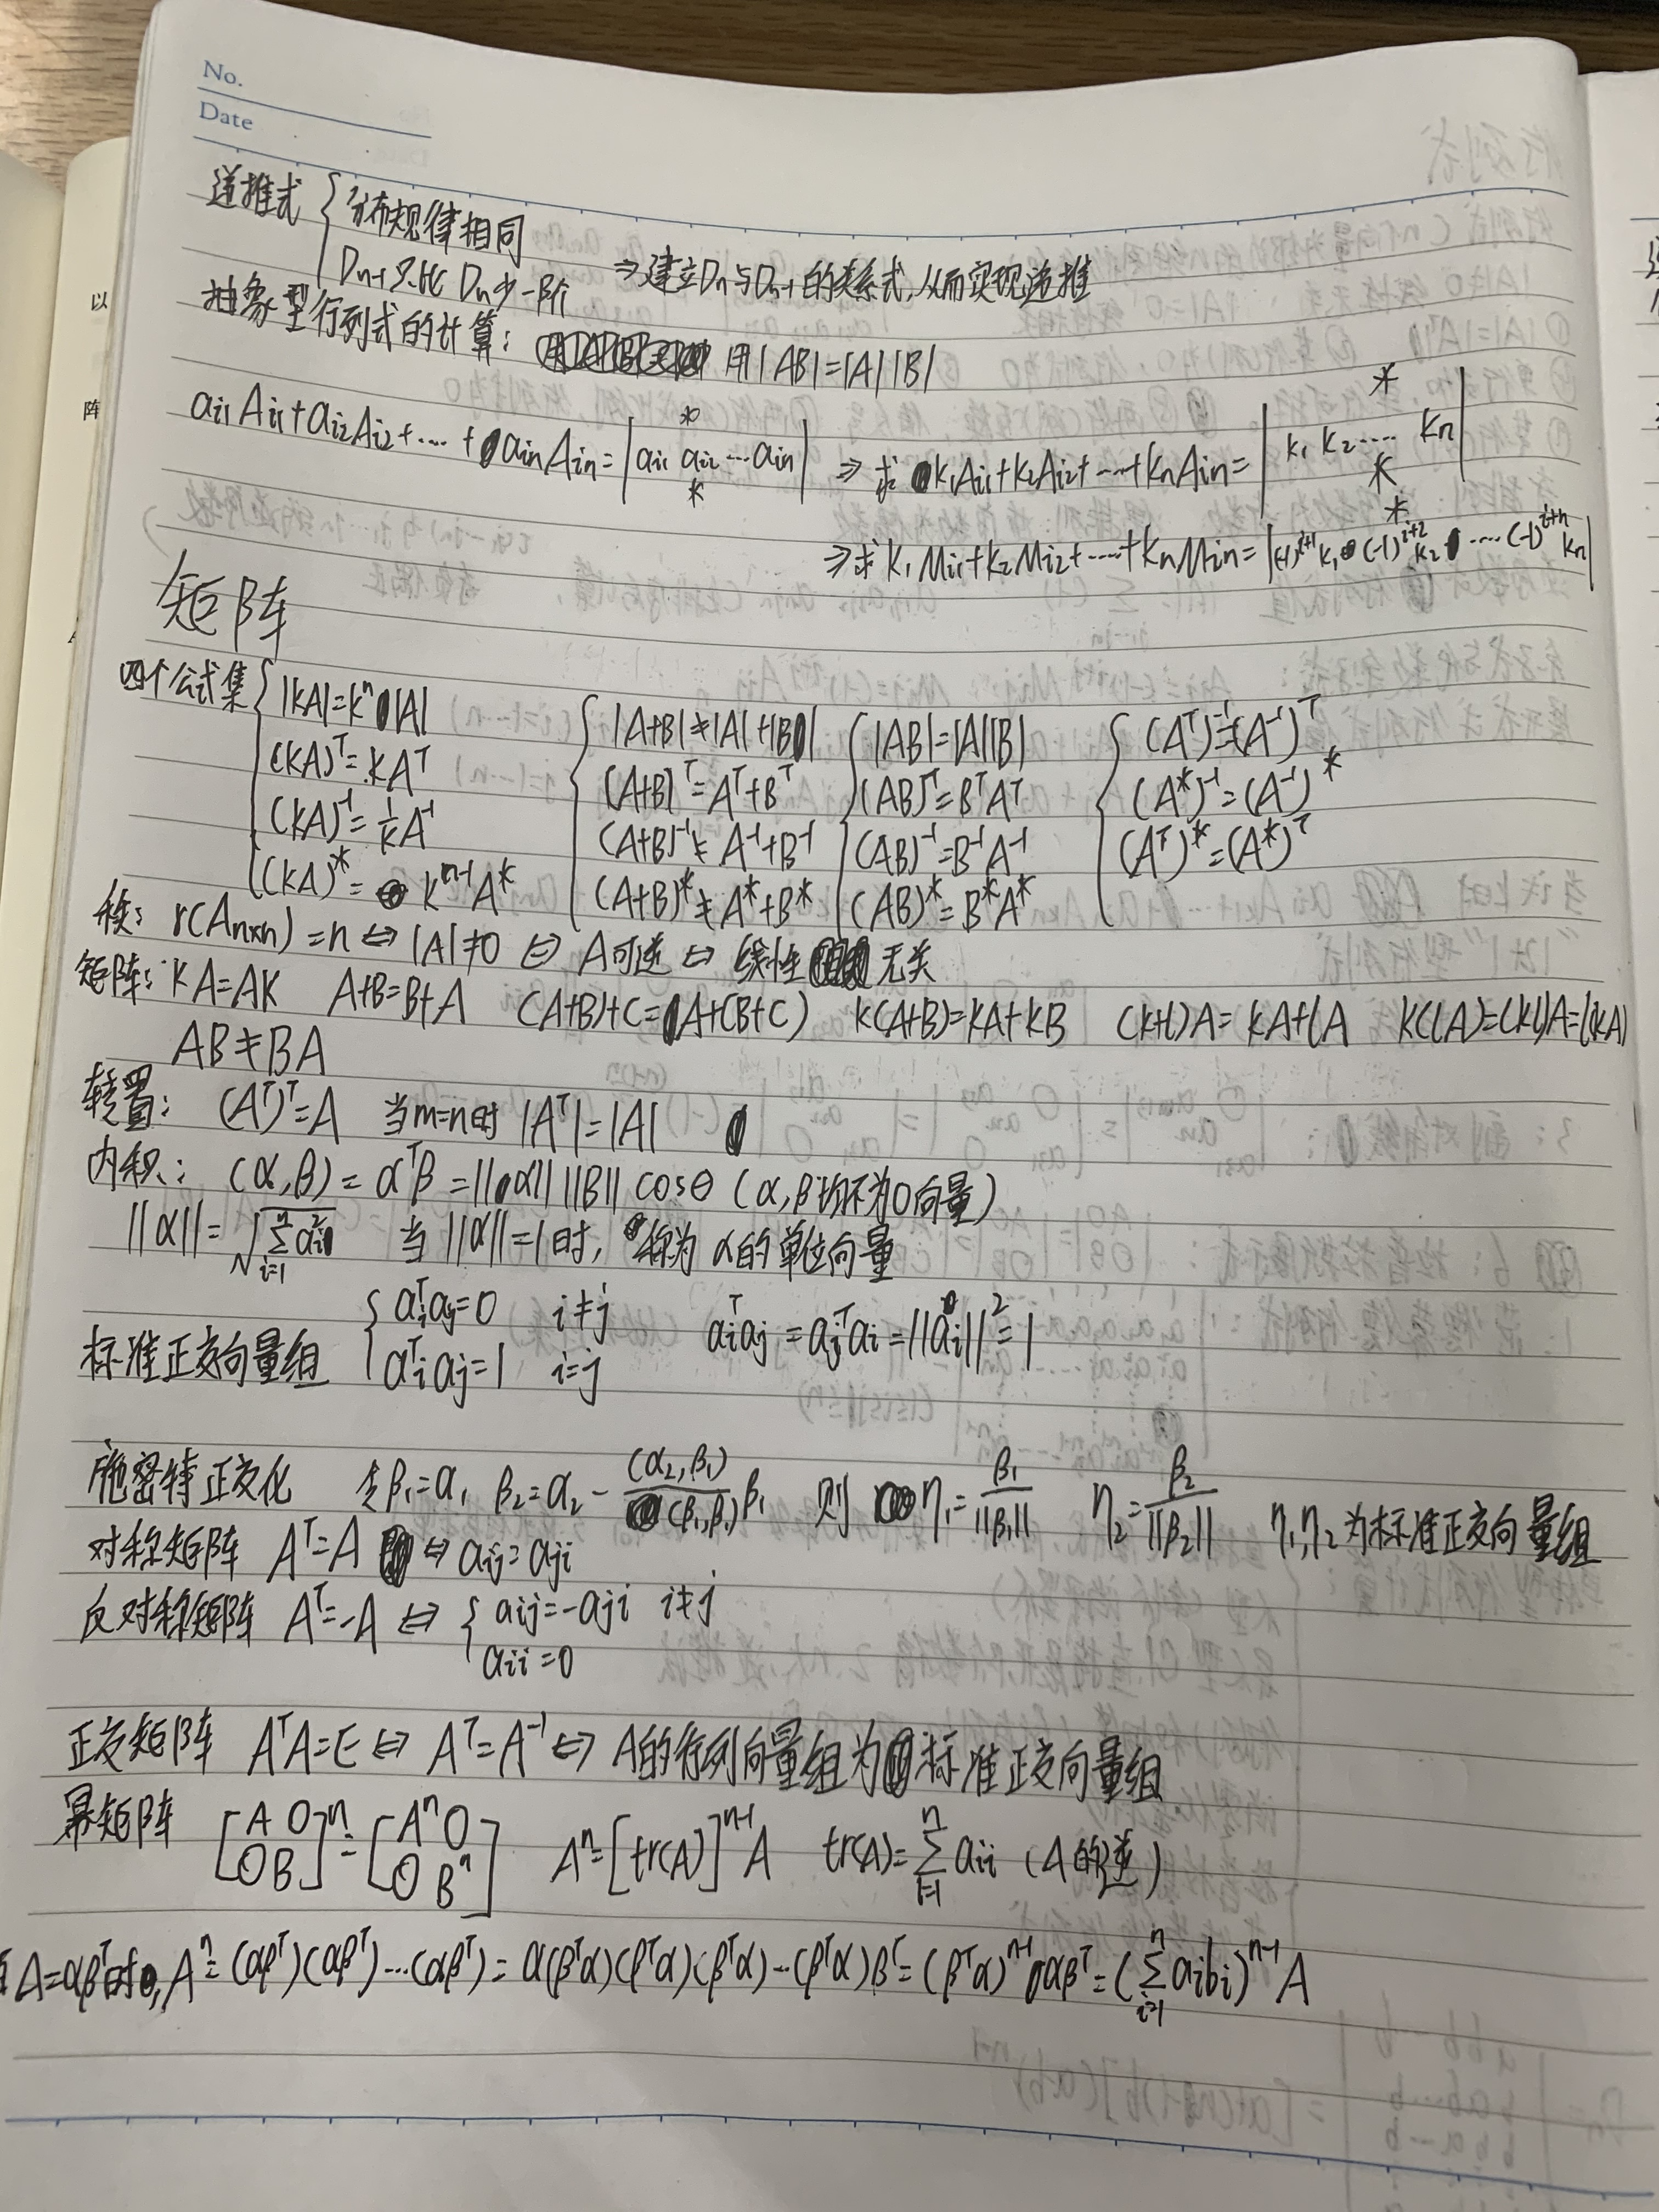 No.
Date
递推式 { 分布规律相同
D_{n-1}只比D_n少一阶 ⇒建立D_n与D_{n-1}的关系式,从而实现递推
抽象型行列式的计算: 用|AB|=|A||B|
a_{i1}A_{i1}+a_{i2}A_{i2}+……+a_{in}A_{in}=|* a_{i1} a_{i2}…a_{in} *| ⇒求 k_1A_{i1}+k_2A_{i2}+……+k_nA_{in}=|* k_1 k_2…… k_n *|
⇒求 k_1M_{i1}+k_2M_{i2}+……+k_nM_{in}=|* (-1)^{i+1}k_1 (-1)^{i+2}k_2 ……(-1)^{i+n}k_n|
矩阵
四个公式集 { |kA|=k^n|A| { |A+B|≠|A|+|B| { |AB|=|A||B| { (A^T)^{-1}=(A^{-1})^T
(kA)^T=kA^T (A+B)^T=A^T+B^T (AB)^T=B^TA^T (A^*)^{-1}=(A^{-1})^*
(kA)^{-1}=\frac{1}{k}A^{-1} (A+B)^{-1}≠A^{-1}+B^{-1} (AB)^{-1}=B^{-1}A^{-1} (A^T)^*=(A^*)^T
(kA)^*=k^{n-1}A^* (A+B)^*≠A^*+B^* (AB)^*=B^*A^*
秩: r(A_{n×n})=n⇔|A|≠0⇔A可逆⇔线性无关
矩阵: kA=Ak A+B=B+A (A+B)+C=A+(B+C) k(A+B)=kA+kB (k+l)A=kA+lA k(lA)=(kl)A=l(kA)
AB≠BA
转置: (A^T)^T=A 当m=n时 |A^T|=|A|
内积: (α,β)=α^Tβ=||α|| ||B|| cosθ (α,β均不为0向量)
||α||=\sqrt{\sum_{i=1}^{n}a_i^2} 当||α||=1时, 称为α的单位向量
标准正交向量组 { a_i^Ta_j=0 i≠j a_i^Ta_j=a_j^Ta_i=||a_i||^2=1
a_i^Ta_j=1 i=j
施密特正交化 令β_1=α_1 β_2=α_2-\frac{(α_2,β_1)}{(β_1,β_1)}β_1 则 η_1=\frac{β_1}{||β_1||} η_2=\frac{β_2}{||β_2||} η_1,η_2为标准正交向量组
对称矩阵 A^T=A ⇔a_{ij}=a_{ji}
反对称矩阵 A^T=-A⇔{ a_{ij}=-a_{ji} i≠j
a_{ii}=0
正交矩阵 A^TA=E⇔A^T=A^{-1}⇔A的行列向量组为标准正交向量组
幂矩阵 [A O; O B]^n=[A^n O; O B^n] A^n=[tr(A)]^{n-1}A tr(A)=\sum_{i=1}^{n}a_{ii} (A的逆)
A=αβ^T时,A^n=(αβ^T)(αβ^T)…(αβ^T)=α(β^Tα)(β^Tα)(β^Tα)…(β^Tα)β^T=(β^Tα)^{n-1}αβ^T=(\sum_{i=1}^{n}a_ib_i)^{n-1}A
以
阵